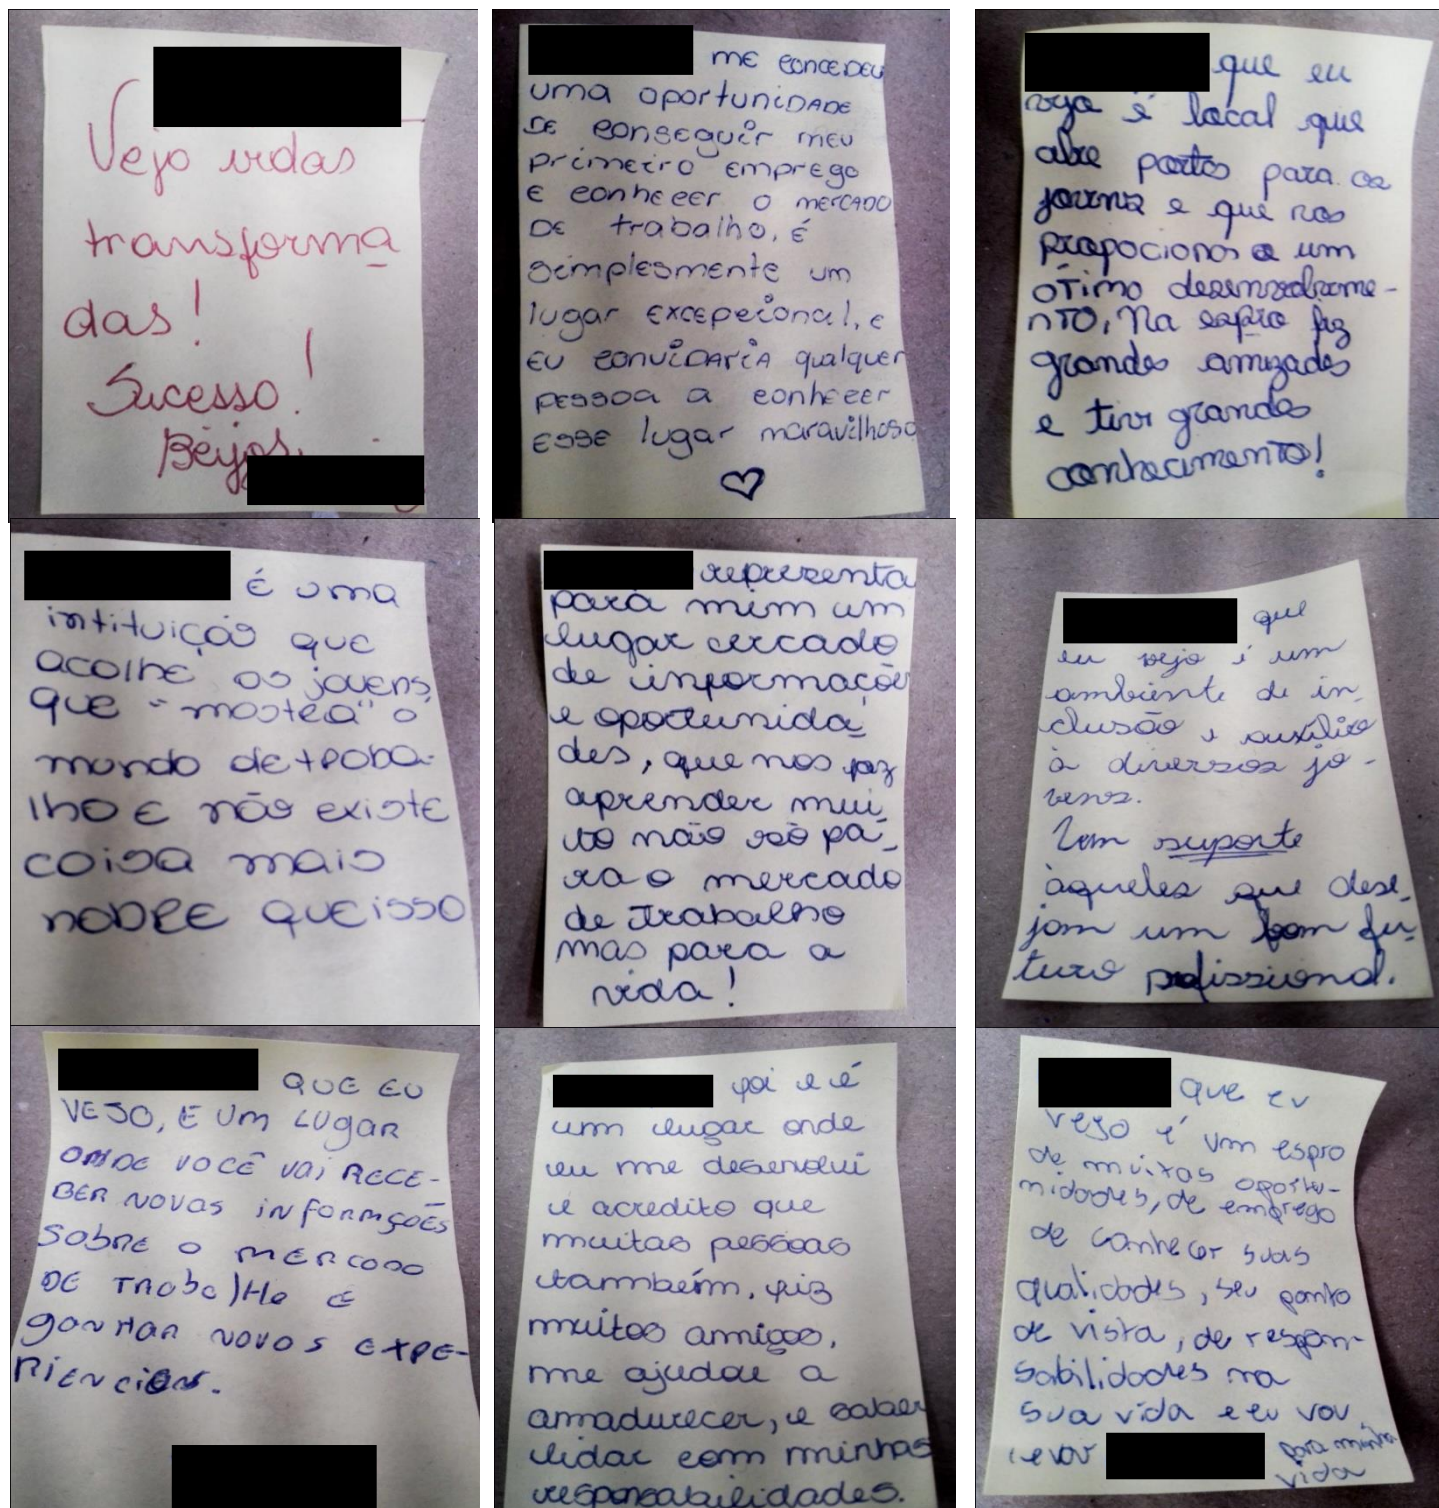 Vejo vidas
transforma
das!
Sucesso!
Beijos
me concedeu
uma oportunidade
de conseguir meu
primeiro emprego
e conhecer o mercado
de trabalho, é
simplesmente um
lugar excepcional, e
eu convidaria qualquer
pessoa a conhecer
esse lugar maravilhoso
que eu
vejo é local que
abre portas para os
jovens e que nos
propocionos a um
ótimo desenvolvime-
nto, Na espro fiz
grandes amizades
e tive grandes
conhecimento!
é uma
intituição que
acolhe os jovens,
que "mostra" o
mundo de traba-
lho e não existe
coisa mais
nobre que isso
representa
para mim um
lugar cercado
de informações
e oportunida_
des, que nos faz
aprender mui_
to não só pa_
ra o mercado
de trabalho
mas para a
vida!
que
eu vejo é um
ambiente de in_
clusão e auxílio
à diversos jo-
vens.
Um suporte
àqueles que dese_
jam um bom fu_
turo profissional.
QUE EU
VEJO, E UM LUGAR
ONDE VOCÊ VAI RECE-
BER NOVAS INFORMÇOES
SOBRE O MERCADO
DE TRABALHO E
GANHAR NOVAS EXPE-
RIENCIAS.
foi e é
um lugar onde
eu me desenvolvi
e acredito que
muitas pessoas
também, fiz
muitos amigos,
me ajudou a
amadurecer, e saber
lidar com minhas
responsabilidades.
que eu
vejo é um espro
de muitas oportu-
nidades, de emprego
de conhecer suas
qualidades, seu ponto
de vista, de respon-
sabilidades na
sua vida e eu vou
levar para minha
vida